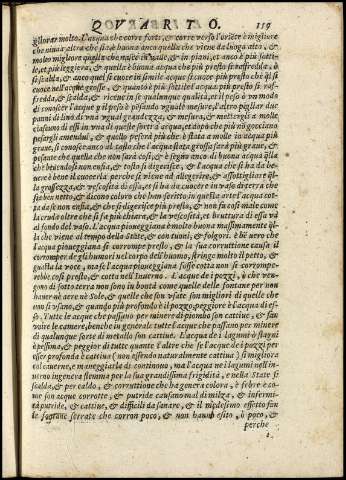 QVARTO. 119
gliorar molto. L'acqua che corre forte, & corre verso l'oriete è migliore
che niun'altra che sia è buona anco quella che viene da luogo alto, &
molto migliore quella che nasce in valle, & in piani, et anco è più sotti-
le, et più leggiera, & quella è buona acqua che più presto si raffredda, ò
si scalda, & anco quel si cuoce in simile acque si cuoce più presto che ql si
cuoce nell'acque grosse, & quanto è più sottile l'acqua più presto si raf-
fredda, & scalda, & viene in se qualunque qualità, et il peso è un modo
di conoscer l'acque è il peso è pesando vguale mesure, l'altro pigliar due
panni di lino di vna vgual grandezza, & mesura, & mettergli a molle
ciascuno di essi in vna di queste sorti acqua, et dapoi che non gocciano
pesargli amendui, & quello peserà più che è stato a molle in acqua più
graue, si conosce anco al tasto che l'acqua stessa grossa sarà più graue, &
pesante che quella che non sarà così, & è segno anco di buona acqua qlla
che beuendosi non ensia, & tosto si digerisce, & l'acqua che si ha da be-
uere è bene il cuocerla perche si viene ad allegerire, & assottigliare qlla
la grossezza, & viscosità di essa, et si ha da cuocere in vaso di terra che
sia ben netto, & dicono coloro che ben sentito in quella arte l'acqua cot-
ta da se non ensia, & che si digerisce più presto, & non fa così male come
la cruda oltre che si fa più chiara, & la viscosità, et bruttura di essa và
al fondo del vaso. L'acqua pioueggiana è molto buona massimamente ql-
la che viene al tempo della State, & con tuoni, & folgori. e bē vero che
l'acqua pioueggiana si corrompe presto, & la sua corruttione causa il
corromper de gli humori nel corpo dell'huomo, stringe molto il petto, &
guasta la voce, ma se l'acqua pioueggiana fosse cotta non se corrompe-
rebbe, così presto, & cotta nell'Inuerno. L'acque dei pozzi, è che ven-
gono di sotto terra non sono in bontà come quelle delle fontane per non
hauer nè aere nè Sole, & quelle che son vsate son migliori di quelle che
non si vsano, & quando più profondo è il pozzo, peggiore è l'acqua di es-
so. Tutte le acque che passano per minere di piombo son cattiue, & fan
voire le camere, benche in generale tutte l'acque che passano per minere
di qualunque sorte di metallo son cattiue. L'acqua de i lagumi è stagni
è pessima, & peggior di tutte quante l'altre che se l'acque de i pozzi per
esser profonda è cattiua (non essendo naturalmente cattiua) si migliora
col cauerne, e maneggiarla di continouo, ma l'acqua ne i lagumi nell'in-
uerno ingenera flemma per la sua grandissima frigidità, e nella State si
scalda, & per caldo, & corruttione che ha genera colora, è febre e co-
me son acque corrotte, & putride causano mal di milza, & infermi-
tà putride, & cattiue, & difficili da sanare, & il medesimo effetto fan
le fogiane serrate che corron poco, & non hanno esito, ò poco, &
perche